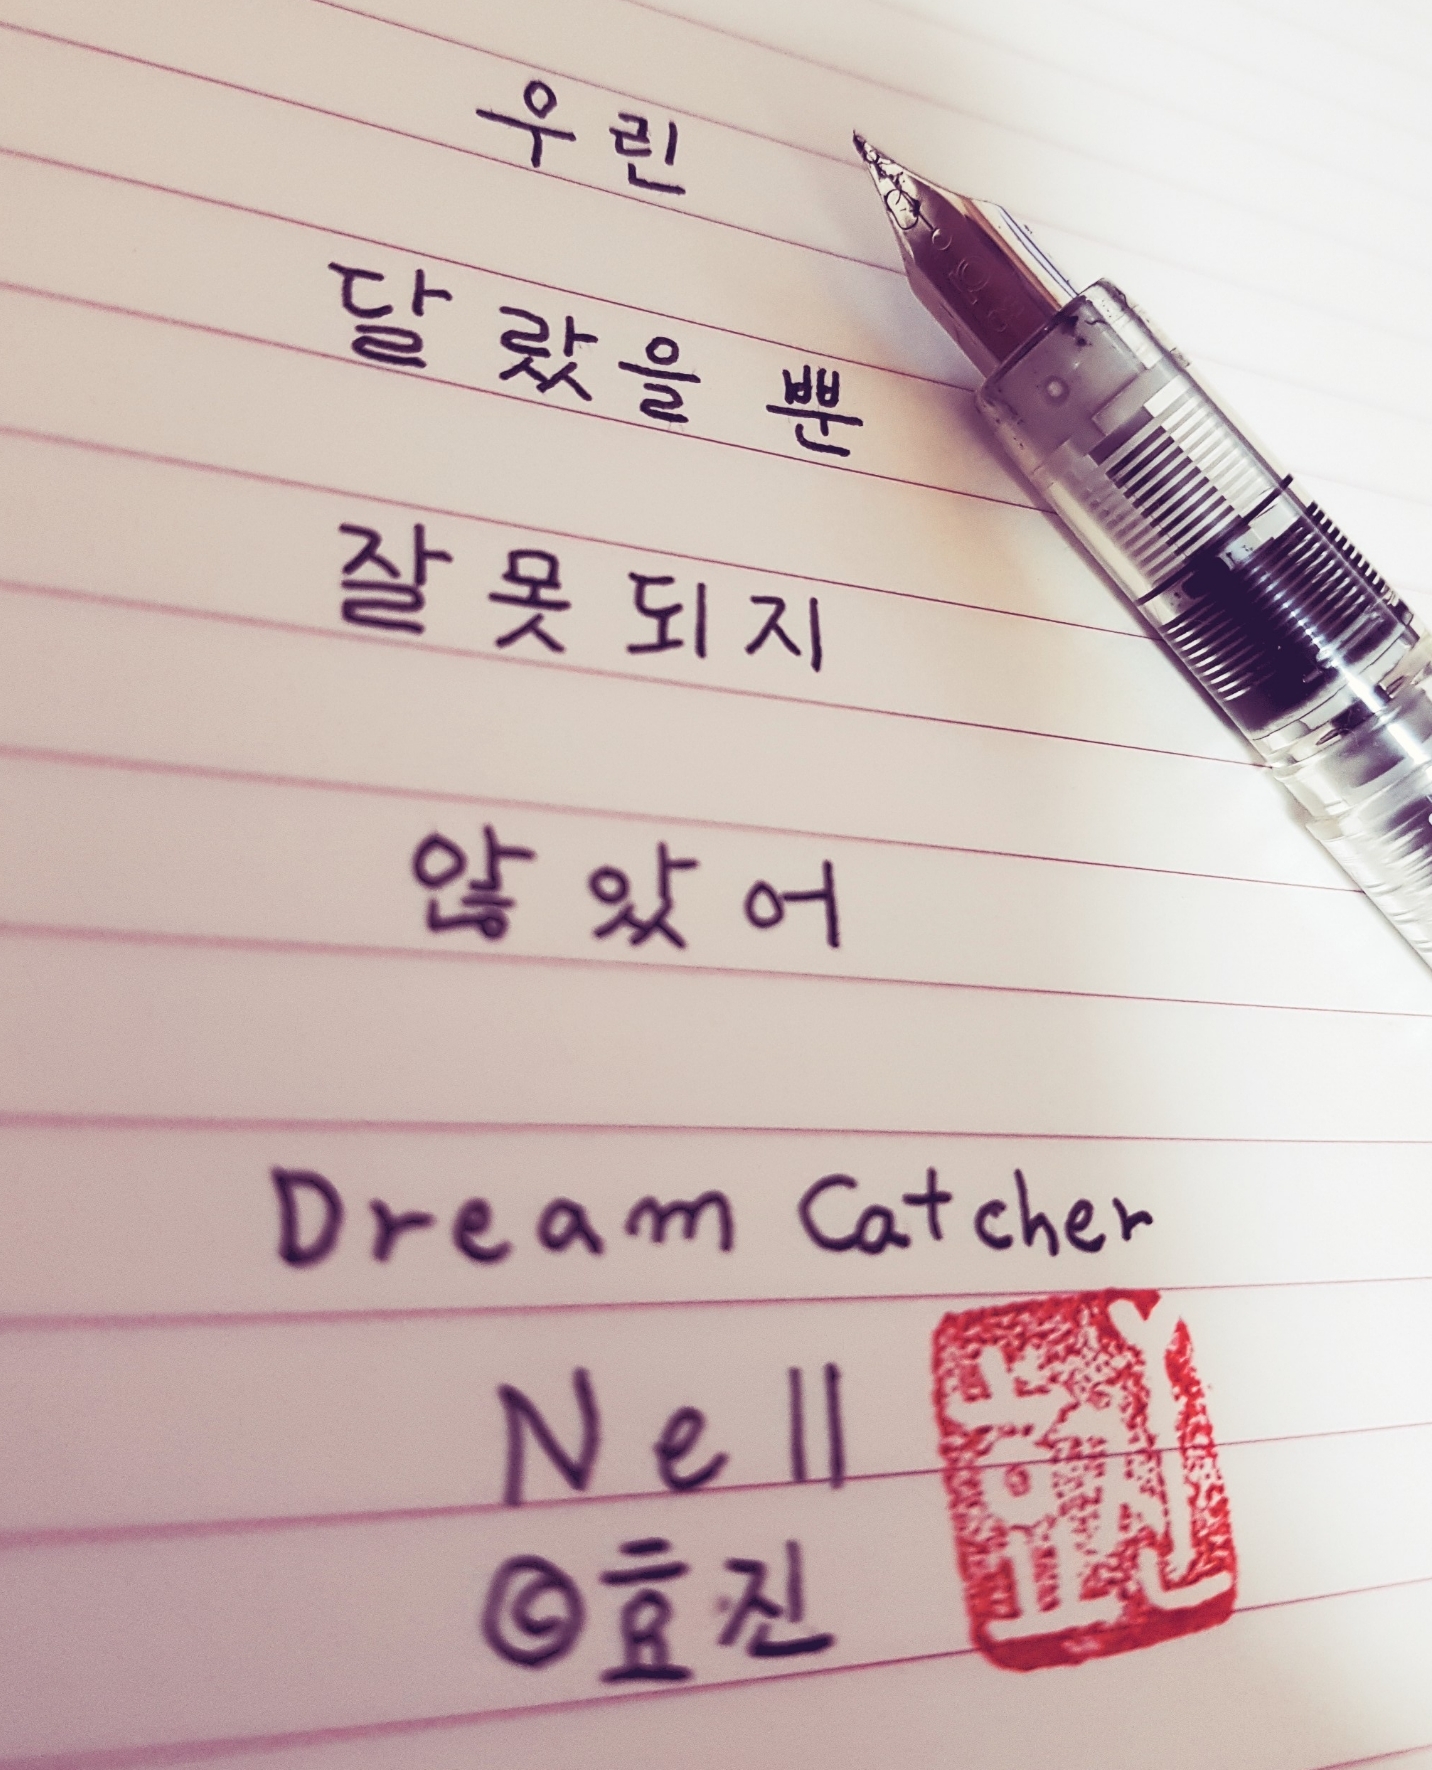 우린
달랐을 뿐
잘못되지
않았어
Dream Catcher
Nell
©효진
효진